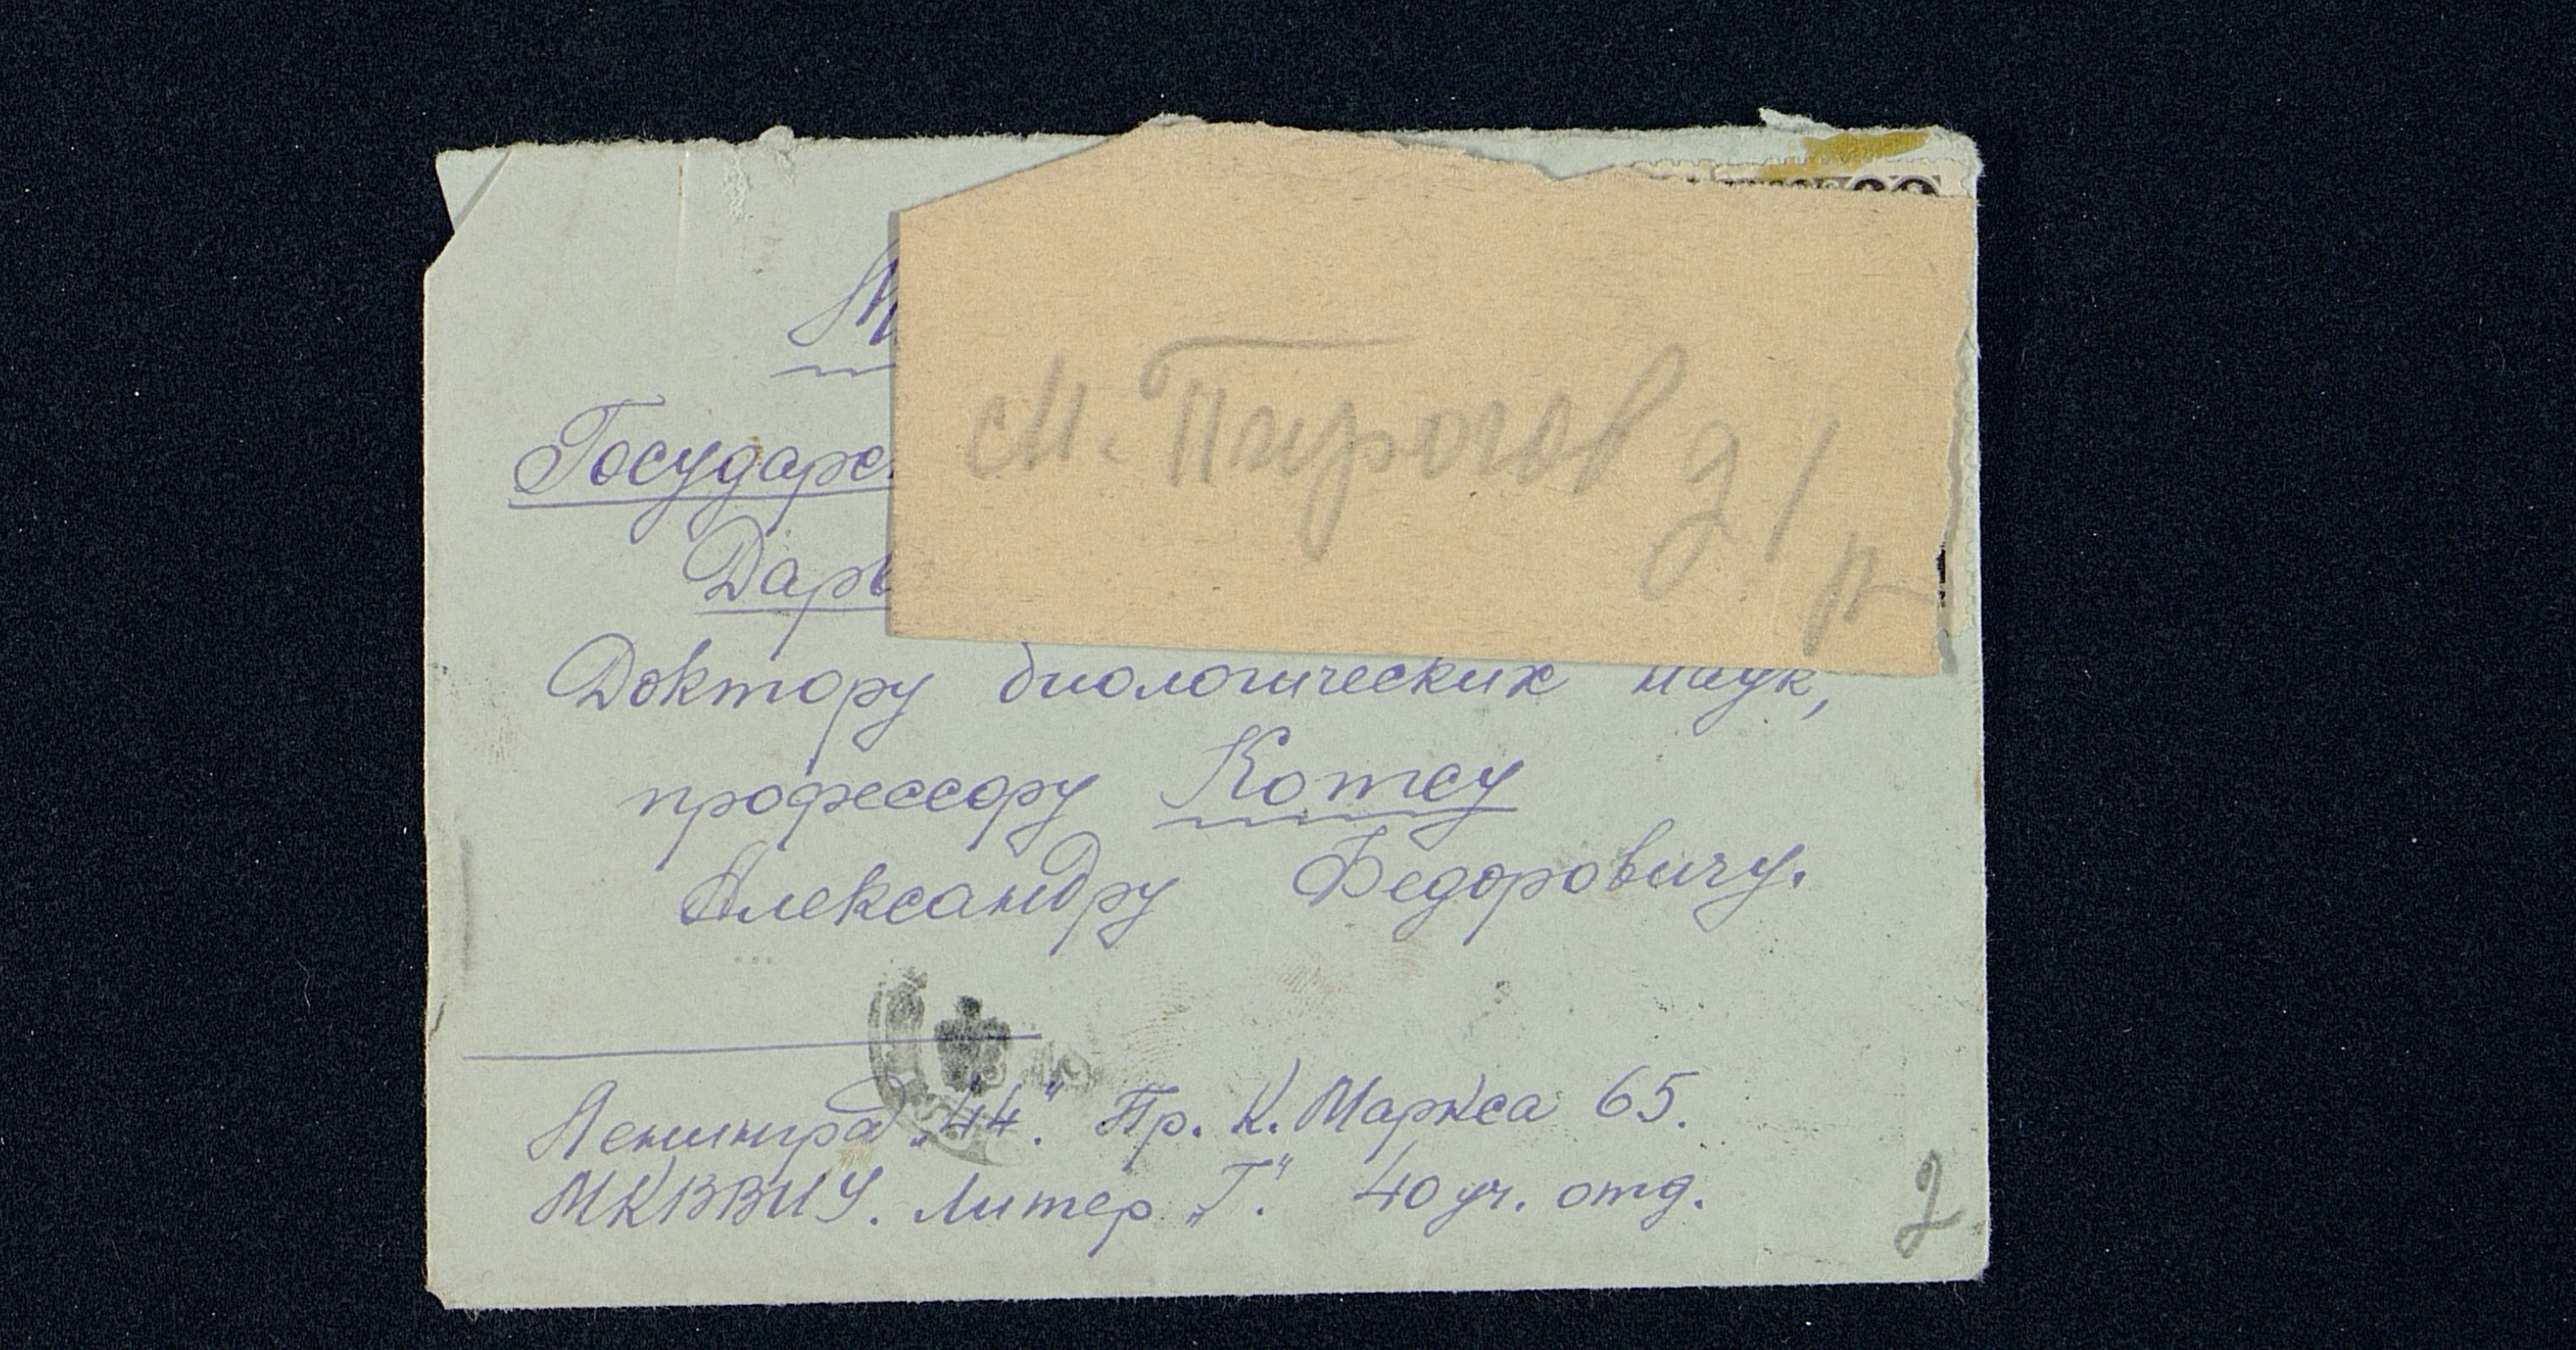 М
Государс
Дарв
Доктору биологических наук,
профессору Котсу
Александру Федоровичу.
м. Пирогов
Ленинград „44". Пр. К. Маркса 65.
МКВВИУ. Литер „Г". 40 уч. отд.
2